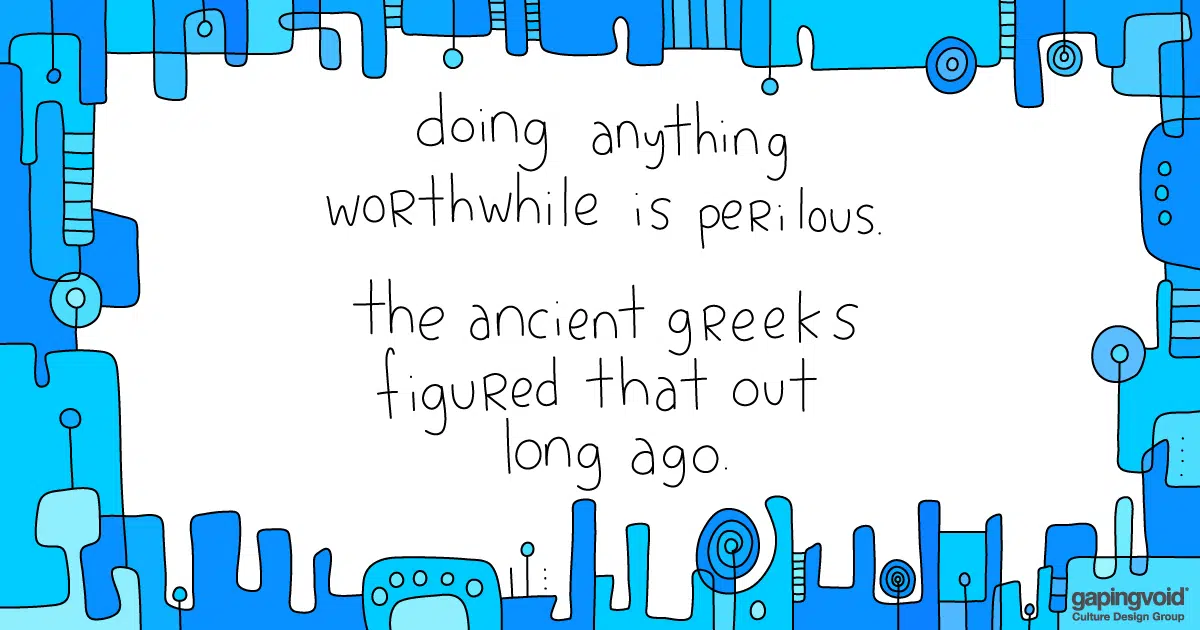 doing anything
worthwhile is perilous.
the ancient greeks
figured that out
long ago.
gapingvoid®
Culture Design Group